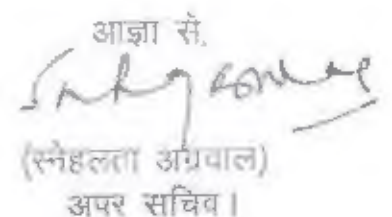 आज्ञा से,
(स्नेहलता अग्रवाल)
अपर सचिव।